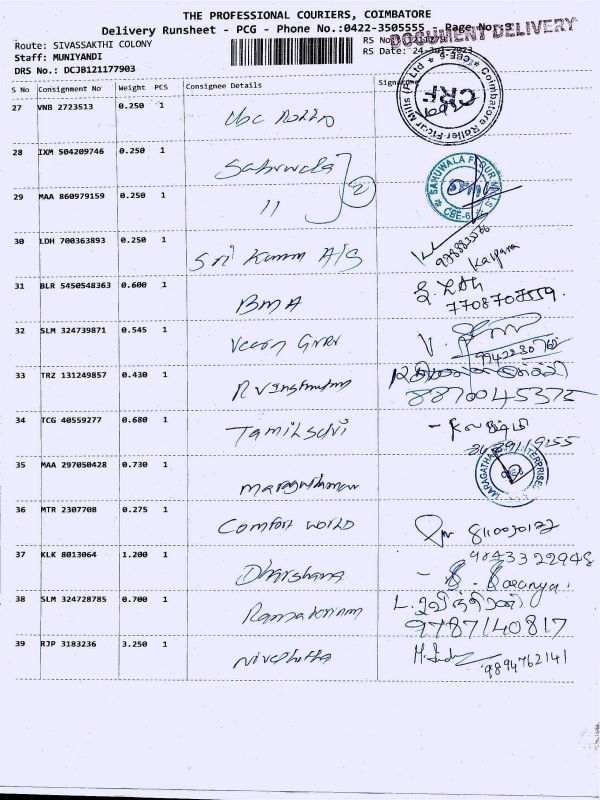 THE PROFESSIONAL COURIERS, COIMBATORE
Delivery Runsheet - PCG - Phone No.:0422-3505555 - Page No: 3
DOCUMENT DELIVERY
Route: SIVASSAKTHI COLONY
RS No
Staff: MUNIYANDI
RS Date: 24-Jul-2023
DRS No.: DCJB121177903
S No Consignment No Weight PCS Consignee Details Signature
27 VNB 2723513 0.250 1
Coimbatore Roller Flour Mills (P) Ltd CBE-6
CRF
28 IXM 504209746 0.250 1 Sahuwala
SAHUWALA FLOUR MILLS CBE-6
2
29 MAA 860979159 0.250 1 11
30 LDH 700363893 0.250 1 Sri Kumm A/G
Kalpana
31 BLR 5450548363 0.600 1 BMA
7708707559.
32 SLM 324739871 0.545 1
9942230760
33 TRZ 131249857 0.430 1
8870045372
34 TCG 40559277 0.680 1 Tamilselvi
35 MAA 297050428 0.730 1
MARAGATHAM ENTERPRISES
36 MTR 2307708 0.275 1 Comfort World
37 KLK 8013064 1.200 1 Dharshana
9843322948
S. Saranya.
38 SLM 324728785 0.700 1
9787140817
39 RJP 3183236 3.250 1
9894762141